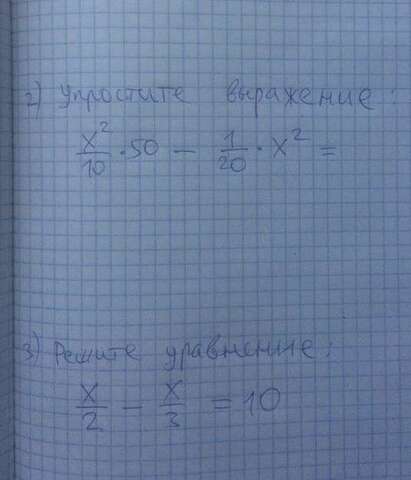 2) Упростите выражение:
x²/10 · 50 — 1/20 · x² =
3) Решите уравнение:
x/2 — x/3 = 10